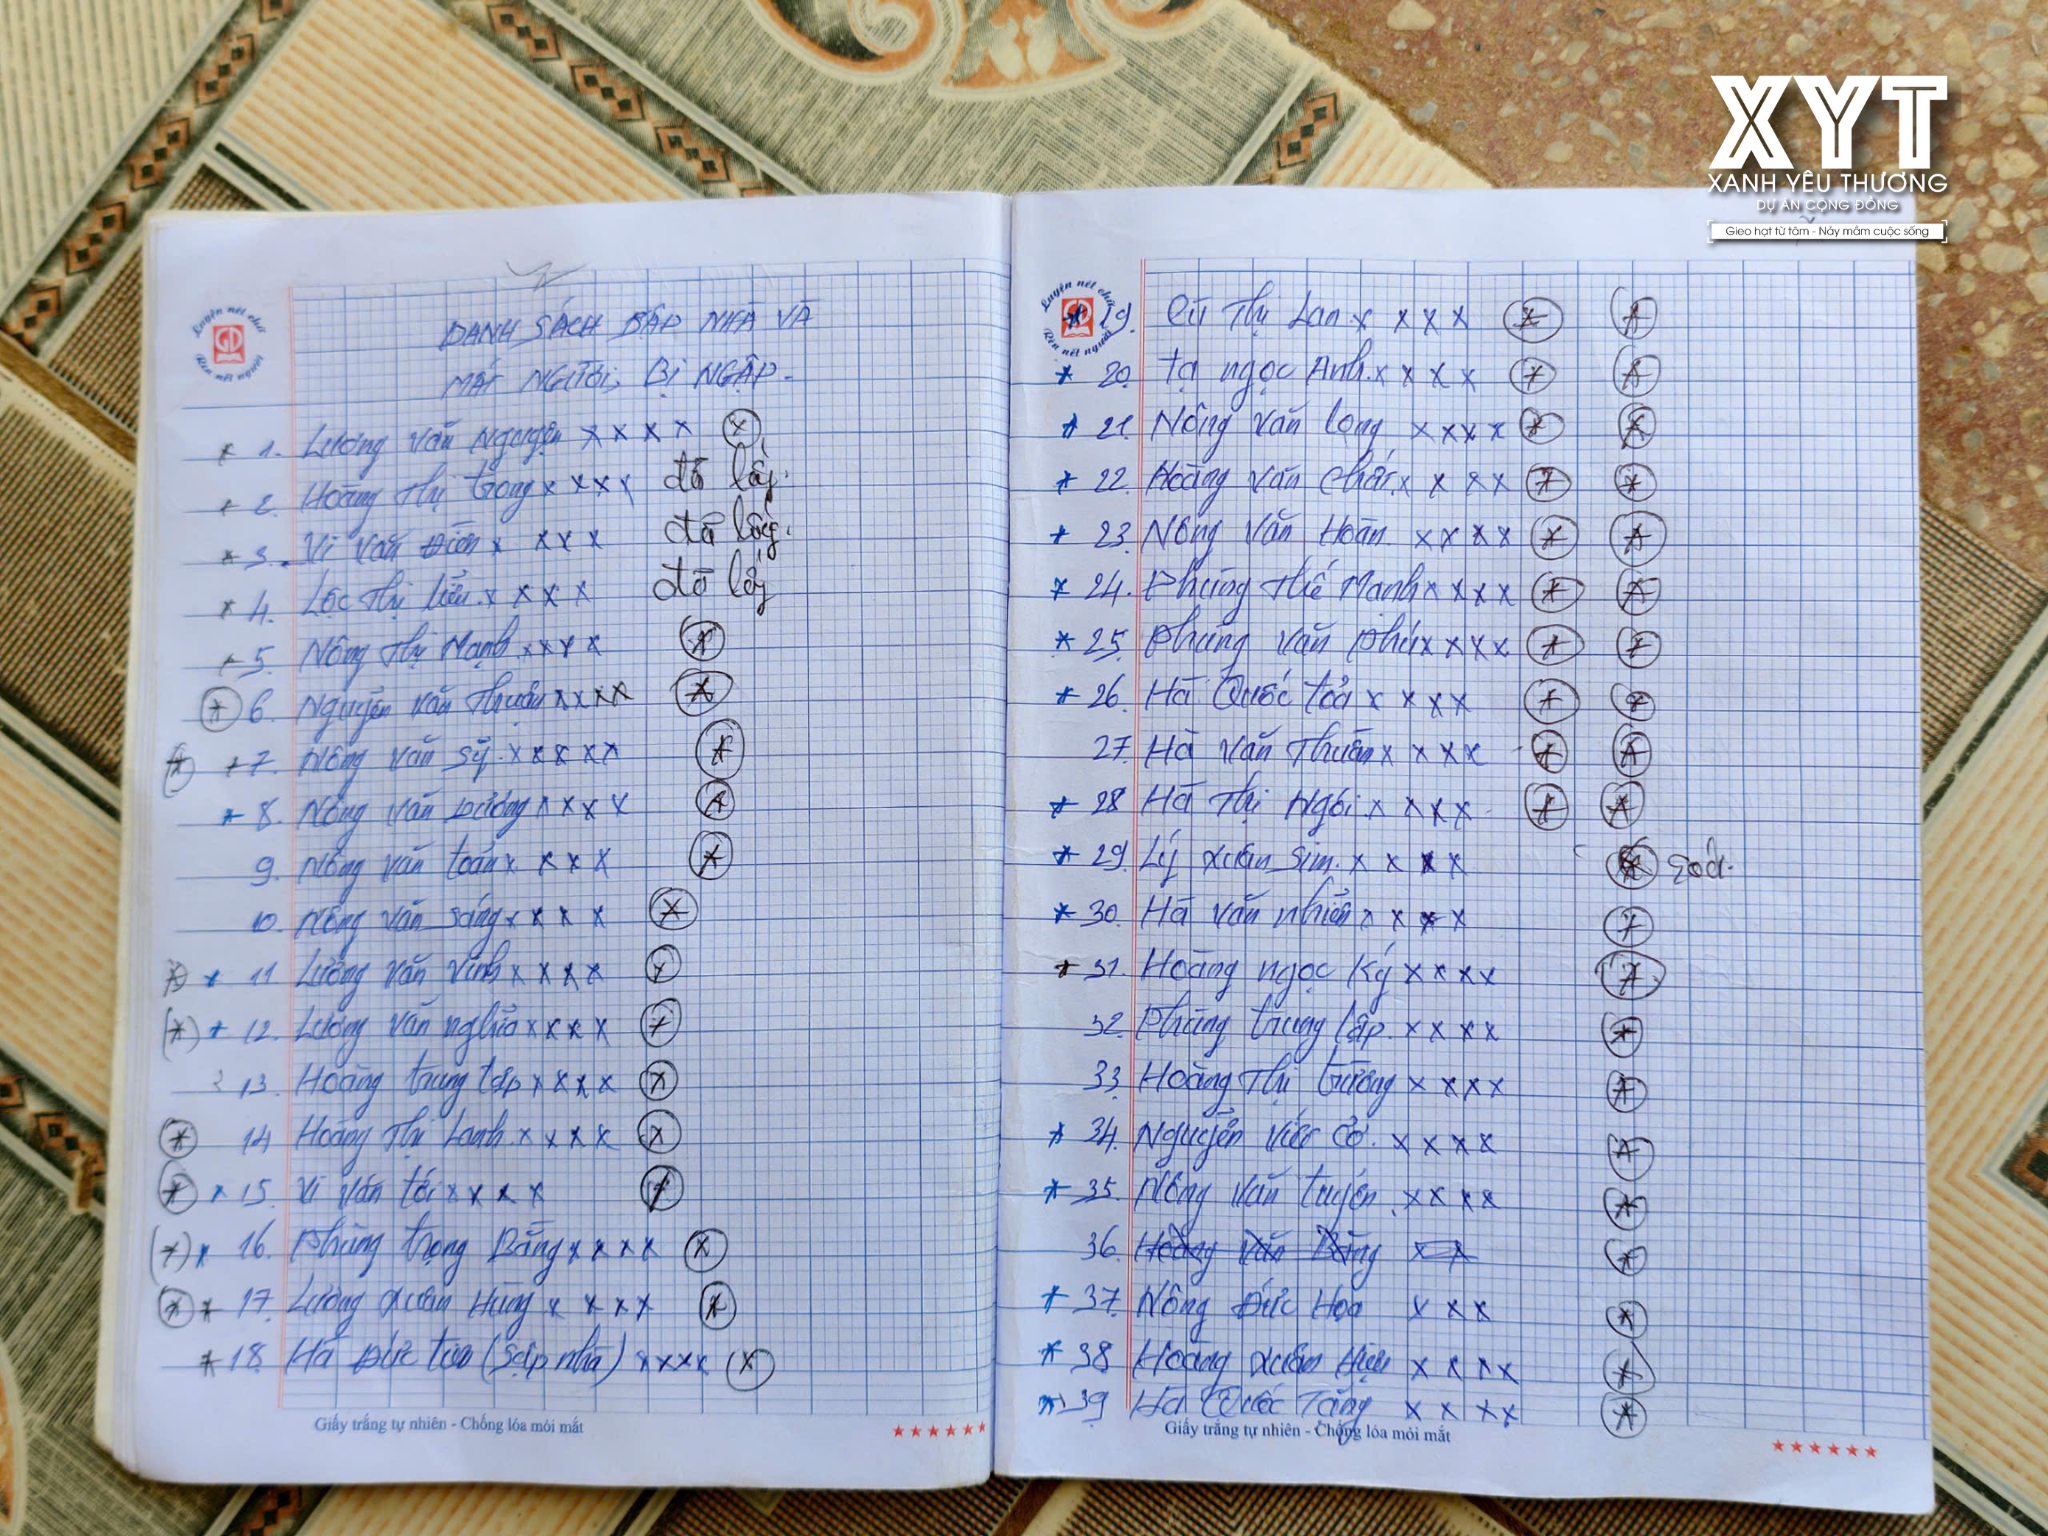 XYT
XANH YÊU THƯƠNG
DỰ ÁN CỘNG ĐỒNG
Gieo hạt từ tâm - Nảy mầm cuộc sống
Luyện nét chữ
Rèn nết người
DANH SÁCH SẬP NHÀ VÀ
MẤT NGƯỜI, BỊ NGẬP.
* 1. Lương Văn Nguyện x x x x x
* 2. Hoàng Thị Trong x x x x đã lấy.
* 3. Vi Văn Điền x x x x đã lấy.
* 4. Lộc Thị Liểu x x x x đã lấy
* 5. Nông Thị Mạnh x x x x *
* 6. Nguyễn Văn Thuận x x x x *
* * 7. Nông Văn Sỹ x x x x x *
* 8. Nông Văn Dương x x x x *
9. Nông Văn Toán x x x x *
10. Nông Văn Sáng x x x x x
* * 11 Lương Văn Vinh x x x x x
(*) * 12. Lương Văn Nghĩa x x x x *
13. Hoàng Trung Tập x x x x x
* 14 Hoàng Thị Lanh x x x x x
* * 15. Vi Văn Tới x x x x *
(*) * 16. Phùng Trọng Bằng x x x x x
* * 17. Lương Xuân Hùng x x x x *
* 18. Hà Đức (Sập nhà) x x x x x
Giấy trắng tự nhiên - Chống lóa mỏi mắt
Luyện nét chữ
Rèn nết người
* 19. Thị Lan x x x x * *
* 20. Tạ Ngọc Anh x x x x * *
* 21. Nông Văn Long x x x x * *
* 22. Hoàng Văn x x x x * *
* 23. Nông Văn Hoàn. x x x x * *
* 24. Phùng Thế Mạnh x x x x * *
* 25. Phùng Văn Phú x x x x * *
* 26. Hà Quốc Toả x x x x * *
27. Hà Văn Thuân x x x x * *
* 28 Hà Thị Ngôi x x x x * *
* 29. Lý Xuân Sim. x x x x *
* 30. Hà Văn Nhiên x x x x *
* 31. Hoàng Ngọc Ký x x x x *
32. Phùng Trung Lập. x x x x *
33. Hoàng Thị Trường x x x x *
* 34. Nguyễn Việt Cơ. x x x x *
* 35. Nông Văn Tuyên. x x x x *
36. Hoàng Văn Bằng x x *
* 37. Nông Đức Hoa x x x *
* 38 Hoàng Xuân x x x x *
* 39 Hà Quốc Tăng x x x x *
Giấy trắng tự nhiên - Chống lóa mỏi mắt